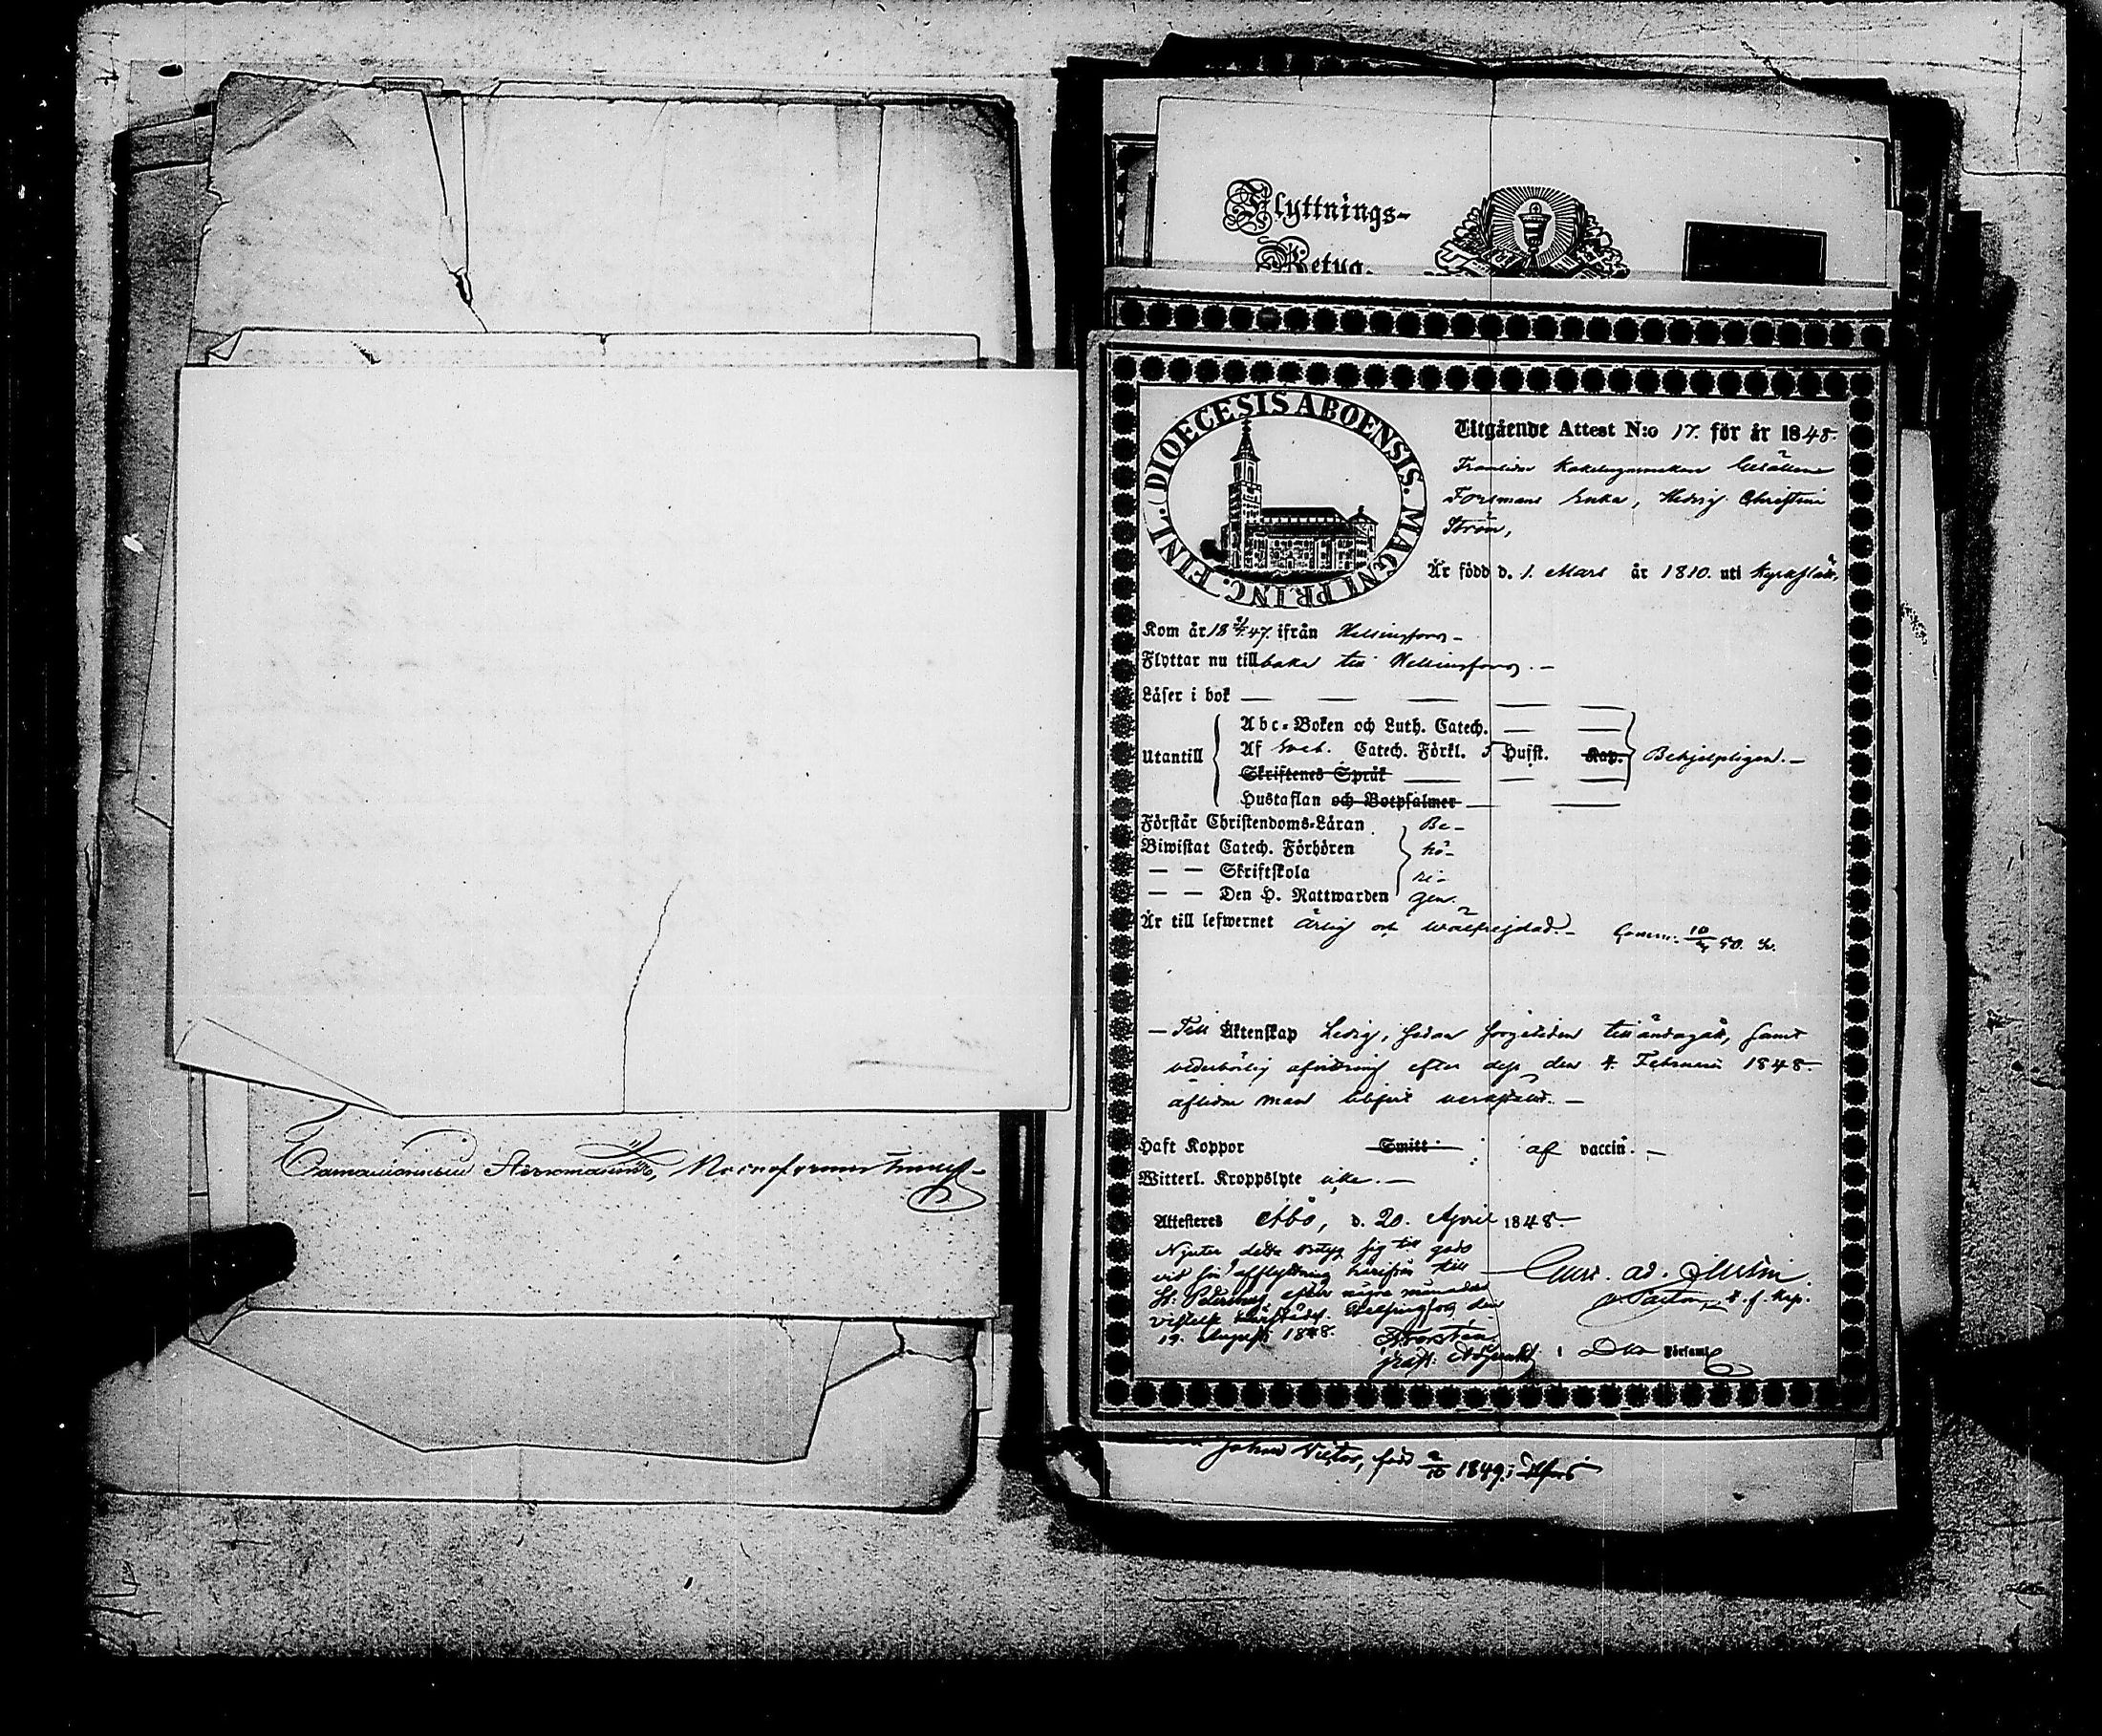 Flyttnings-
Betyg.
DIOECESIS ABOENSIS. MAGNI PRINC. FINL.
Utgående Attest N:o 17. för år 1848.
Framlidne Kakelugnsmakare Gesällen
Forsmans Enka, Hedvig Christina
Ström,
Är född d. 1. Mars år 1810. uti Kyrkslätt,
Kom år 18 47. ifrån Helsingfors -
Flyttar nu tillbaka till Helsingfors. -
Läser i bok — — —
Utantill
Abc-Boken och Luth. Catech. — —
Af Sveb. Catech. Förkl. 5 Hufst. Kap. Behjelpligen. -
Skriftenes Språk
Hustaflan och Botpsalmer
Förstår Christendoms-Läran Be-
Biwistat Catech. Förhören hö-
— — Skriftskola ri-
— — Den H. Nattwarden gen.
Är till lefwernet ärlig och wälfrejdad. - Comm. 10/ 50.
- Till Äktenskap ledig, sedan sorgetiden tilländagått, samt
vederbörlig afvittring efter dess den 4. Februari 1848
aflidne man blifvit verkställd. -
Haft Koppor Smitt af vaccin. -
Witterl. Kroppslyte icke. -
Attesteras Åbo, d. 20. April 1848. -
Njuter detta Betyg sig till godo
vid sin afflyttning härifrån till
St: Petersburg efter några månaders
vistelse härstädes. Helsingfors den
19. Augusti 1848.
v. Pastor
i Dito Församl.
Johan Victor, född 2/10 1849. i H:fors